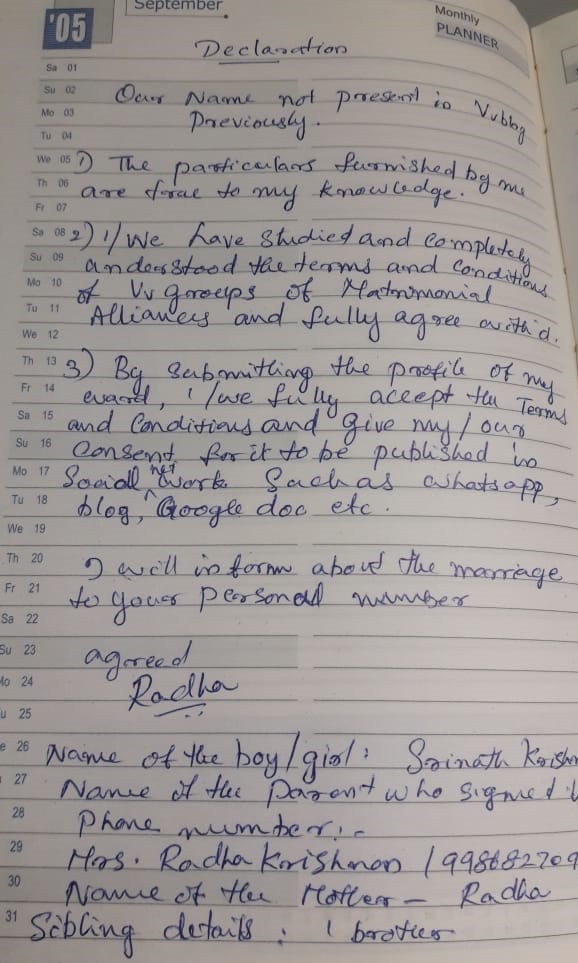 September
'05
Monthly
PLANNER
Declaration
Sa 01
Su 02 Our Name not present in Vvblog
Mo 03 Previously.
Tu 04
We 05 1) The particulars furnished by me
Th 06 are true to my knowledge.
Fr 07
Sa 08 2) I/We have studied and completely
Su 09 understood the terms and conditions
Mo 10 of Vv groups of Matrimonial
Tu 11 Alliances and fully agree with it.
We 12
Th 13 3) By submitting the profile of my
Fr 14 ward, I/we fully accept the Terms
Sa 15 and Conditions and give my/our
Su 16 Consent for it to be published in
Mo 17 Social net work Such as whatsapp,
Tu 18 blog, Google doc etc.
We 19
Th 20 I will inform about the marriage
Fr 21 to your personal number
Sa 22
Su 23 agreed
Mo 24 Radha
u 25
e 26 Name of the boy/girl: Srinath Krishn
27 Name of the parent who signed
28 Phone number:-
29 Mrs. Radha Krishnan / 998682709
30 Name of the Mother - Radha
31 Sibling details : 1 brother